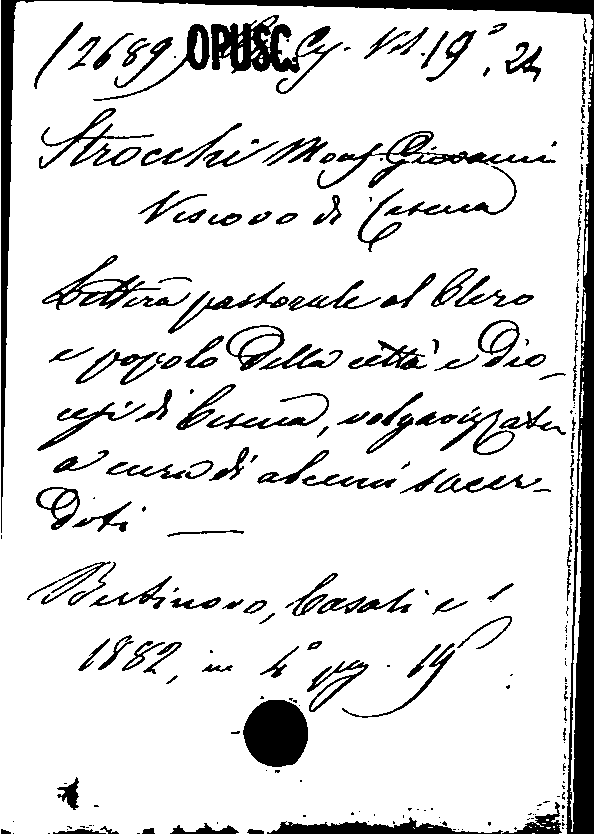 12689 OPUSC. Vol. 19°, 24
Strocchi Mons. Giovanni
Vescovo di Cesena
Lettera pastorale al Clero
e popolo della città e Dio-
cesi di Cesena, volgarizzata
a cura di alcuni sacer-
doti —
Bertinoro, Casali e
1882, in 4° pag. 19